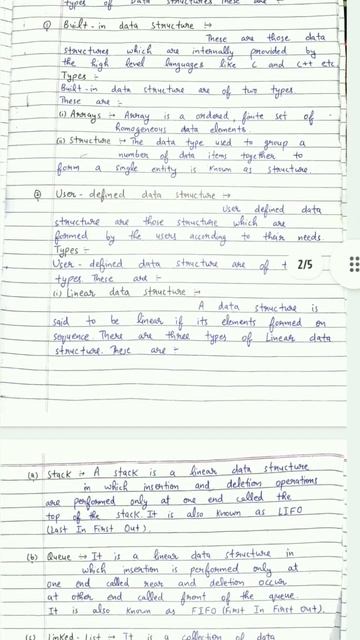 types of Data structures These are :-
① Built-in data structure :→
These are those data
structures which are internally provided by
the high level languages like C and C++ etc.
Types :-
Built-in data structure are of two types.
These are :-
(i) Arrays → Array is a ordered, finite set of
homogeneous data elements.
(ii) Structure → The data type used to group a
number of data items together to
form a single entity is known as structure.
② User-defined data structure :→
User defined data
structure are those structure which are
formed by the users according to their needs.
Types :-
User-defined data structure are of t
types. These are :-
2/5
(i) Linear data structure :→
A data structure is
said to be linear if its elements formed on
sequence. There are three types of Linear data
structure. These are :-
(a) Stack :→ A stack is a linear data structure
in which insertion and deletion operations
are performed only at one end called the
top of the stack. It is also known as LIFO
(Last In First Out).
(b) Queue :→ It is a linear data structure in
which insertion is performed only at
one end called rear and deletion occur
at other end called front of the queue.
It is also known as FIFO (First In First Out).
(c) Linked-List → It is a collection of data